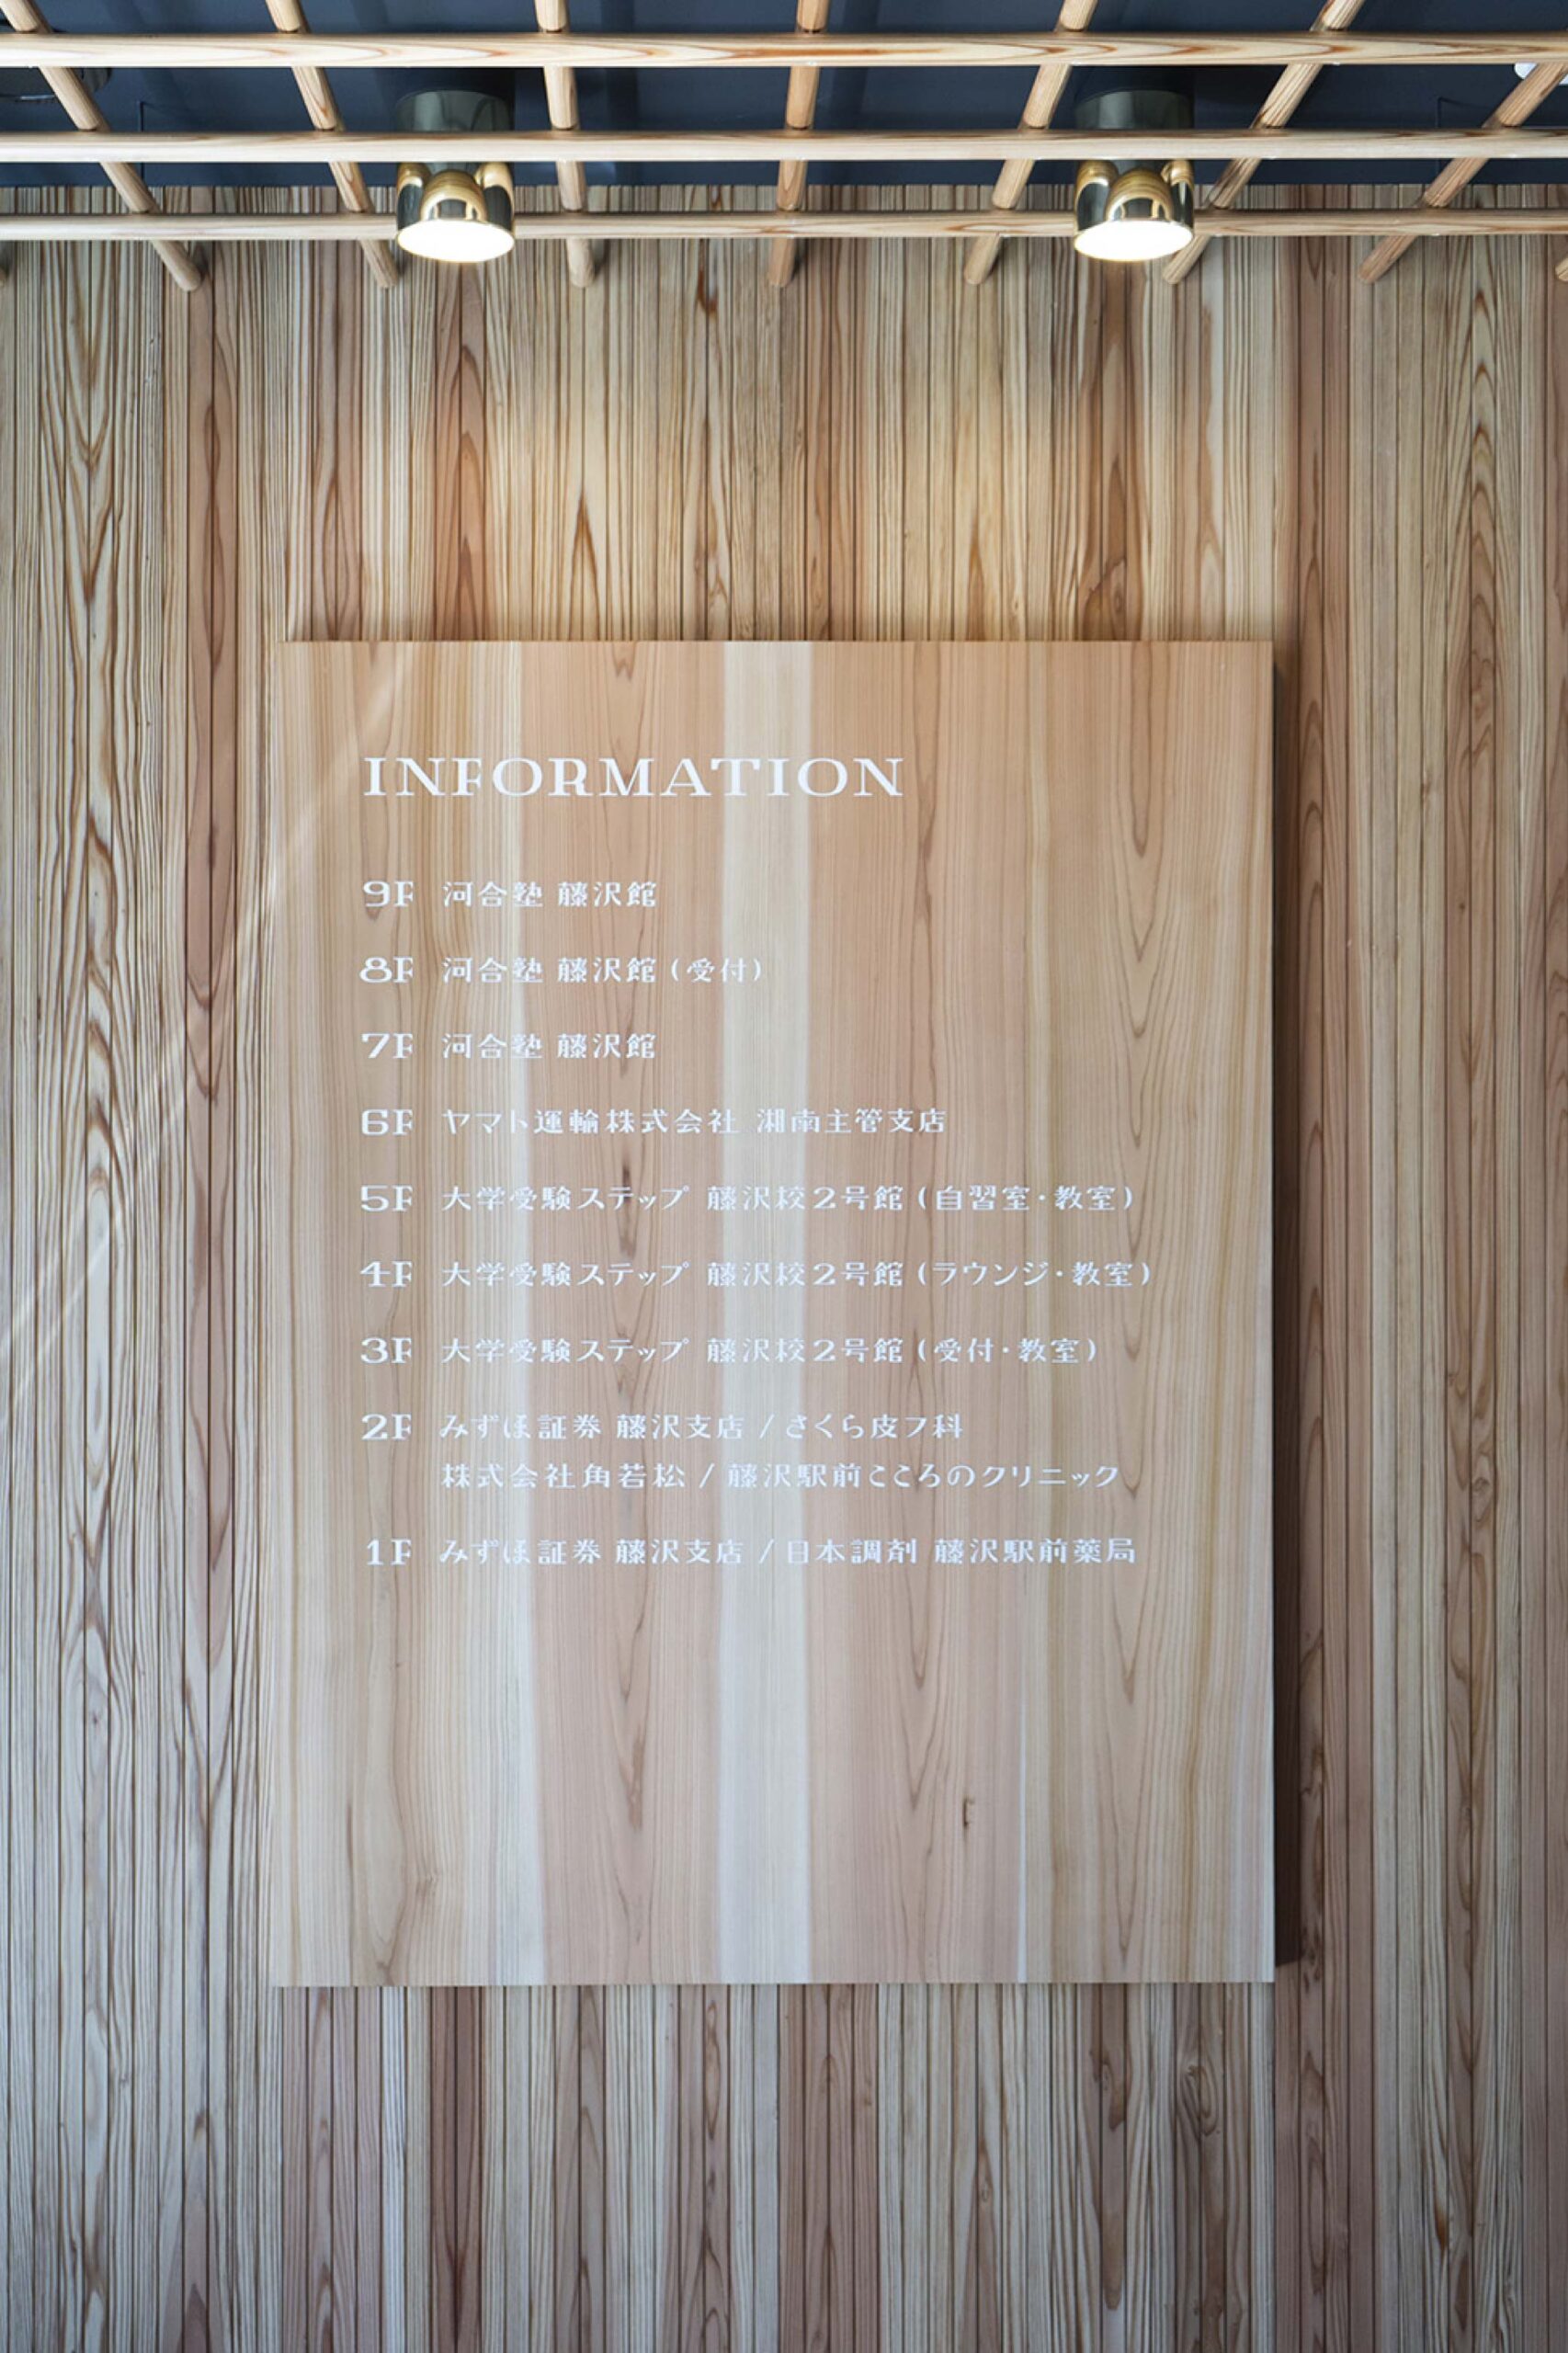 INFORMATION
9F 河合塾 藤沢館
8F 河合塾 藤沢館 (受付)
7F 河合塾 藤沢館
6F ヤマト運輸株式会社 湘南主管支店
5F 大学受験ステップ 藤沢校2号館 (自習室・教室)
4F 大学受験ステップ 藤沢校2号館 (ラウンジ・教室)
3F 大学受験ステップ 藤沢校2号館 (受付・教室)
2F みずほ証券 藤沢支店 / さくら皮フ科
株式会社角若松 / 藤沢駅前こころのクリニック
1F みずほ証券 藤沢支店 / 日本調剤 藤沢駅前薬局